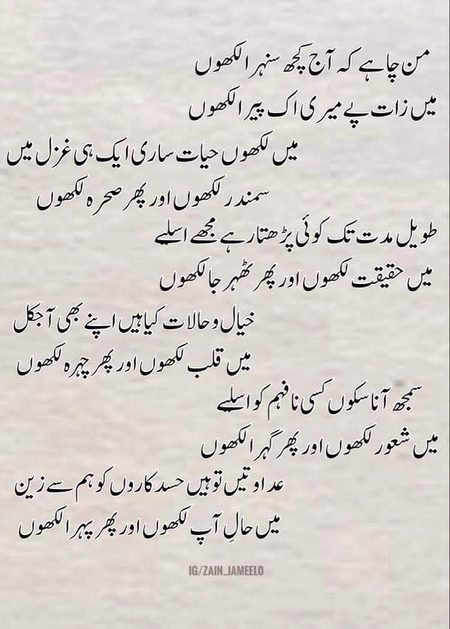 من چاہے کہ آج کچھ سنہرا لکھوں
میں زات پے میری اک پیرا لکھوں
میں لکھوں حیات ساری ایک ہی غزل میں
سمندر لکھوں اور پھر صحرہ لکھوں
طویل مدت تک کوئی پڑھتا رہے مجھے اسلیے
میں حقیقت لکھوں اور پھر ٹھہر جا لکھوں
خیال و حالات کیا ہیں اپنے بھی آجکل
میں قلب لکھوں اور پھر چہرہ لکھوں
سمجھ آنا سکوں کسی نا فہم کو اسلیے
میں شعور لکھوں اور پھر گہرا لکھوں
عداوتیں تو ہیں حسد کاروں کو ہم سے زین
میں حالِ آپ لکھوں اور پھر پہرا لکھوں
IG/ZAIN_JAMEELO